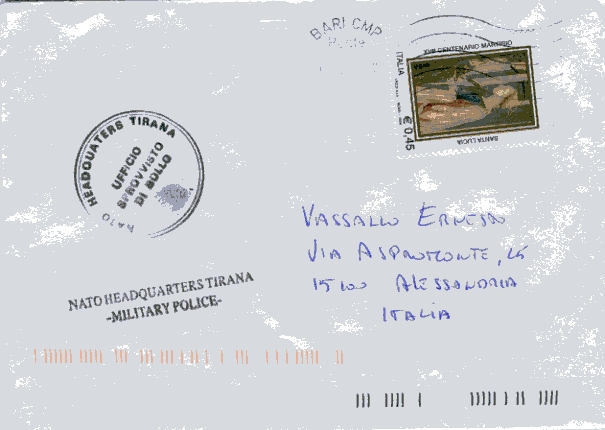 BARI CMP
XVII CENTENARIO MARTIRIO
ITALIA
€ 0,45
SANTA LUCIA
NATO HEADQUATERS TIRANA
UFFICIO
SPROVVISTO
DI BOLLO
VASSALLO ERNESTO
VIA ASPROMONTE, 25
15100 ALESSANDRIA
ITALIA
NATO HEADQUARTERS TIRANA
-MILITARY POLICE-